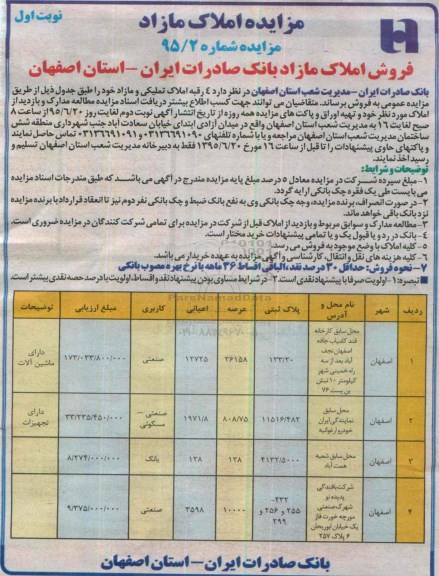 نوبت اول
مزایده املاک مازاد
مزایده شماره ۹۵/۲
فروش املاک مازاد بانک صادرات ایران - استان اصفهان
بانک صادرات ایران - مدیریت شعب استان اصفهان در نظر دارد ٤ رقبه املاک تملیکی و مازاد خود را طبق جدول ذیل از طریق
مزایده عمومی به فروش برساند. متقاضیان می توانند جهت کسب اطلاع بیشتر دریافت اسناد مزایده مطالعه مدارک و بازدید از
املاک مورد نظر خود و تهیه اوراق و پاکت های مزایده همه روزه از تاریخ انتشار آگهی نوبت دوم لغایت روز ۹۵/٦/۲۰ از ساعت ۸
صبح لغایت ۱٦ به مدیریت شعب استان اصفهان واقع در میدان آزادی ابتدای خیابان سعادت آباد جنب شهرداری منطقه شش
ساختمان مدیریت شعب استان اصفهان مراجعه و یا با شماره تلفنهای ۰۳۱۳٦٦۹۱۰۹۰ و ۰۳۱۳٦٦۹۱۰۹۱ تماس حاصل نمایند
و پاکات حاوی پیشنهادات را تا قبل از ساعت ۱٦ مورخ ۱۳۹۵/٦/۲۰ فقط به دبیرخانه مدیریت شعب استان اصفهان تسلیم و
رسید اخذ نمایند.
توضیحات و شرایط:
۱- مبلغ سپرده شرکت در مزایده معادل ۵ درصد مبلغ پایه مزایده مندرج در آگهی می باشد که طبق مندرجات اسناد مزایده
می بایست طی یک فقره چک بانکی ارایه گردد.
۲- در صورت انصراف، برنده مزایده، وجه چک بانکی وی به نفع بانک ضبط و چک بانکی نفر دوم نیز تا انعقاد قرارداد با برنده مزایده
نزد بانک باقی خواهد ماند.
۳- مطالعه مدارک و سوابق مربوط و بازدید از املاک قبل از شرکت در مزایده برای تمامی شرکت کنندگان در مزایده ضروری است.
۴- بانک در رد و یا قبول یک و یا تمامی پیشنهادات خرید مختار است.
۵- کلیه املاک با وضع موجود به فروش می رسد.
٦- کلیه هزینه های نقل و انتقال، کارشناسی و آگهی مزایده به عهده خریدار می باشد.
۷- نحوه فروش: حداقل ۳۰ درصد نقد، الباقی اقساط ۳٦ ماهه با نرخ بهره مصوب بانکی
تبصره: ۱- اولویت صرفا با پیشنهاد نقدی است. ۲- در شرایط مساوی بودن پیشنهاد نقد و اقساط، اولویت با درصد حصه نقدی بیشتر است.
ردیف شهر نام محل و آدرس پلاک ثبتی عرصه اعیانی کاربری مبلغ ارزیابی توضیحات
۱ اصفهان محل سابق کارخانه قند کامیاب جاده اصفهان نجف آباد بعد از سه راه خمینی شهر کیلومتر ۱۰ نبش بن بست ۷۶ ۱۳۳/۲۰ ۲۶۱۵۸ ۱۲۷۲۵ صنعتی ۱۷۳/۰۳۳/۸۰۰/۰۰۰ دارای ماشین آلات
۲ اصفهان محل سابق نمایندگی ایران خودرو ارغوانیه ۱۱۵۱۶/۴۸۲ ۸۰۸/۷۵ ۱۹۷۱/۸ صنعتی - مسکونی ۳۳/۲۳۵/۴۵۰/۰۰۰ دارای تجهیزات
۳ اصفهان محل سابق شعبه همت آباد ۴۱۳۲/۵۰۰۰ ۱۲۸ ۱۲۸ بانک ۸/۲۷۴/۰۰۰/۰۰۰
۴ اصفهان شرکت بافندگی پدیده نو شهرک صنعتی مورچه خورت فاز یک خیابان ابوریحان ۶ پلاک ۲۵۷ ۴۳۲- ۲۵۵ و ۲۵۶ و ۲۹۹ ۱۰۰۰۰ ۳۵۹۸ صنعتی ۹/۳۷۵/۰۰۰/۰۰۰
بانک صادرات ایران - استان اصفهان